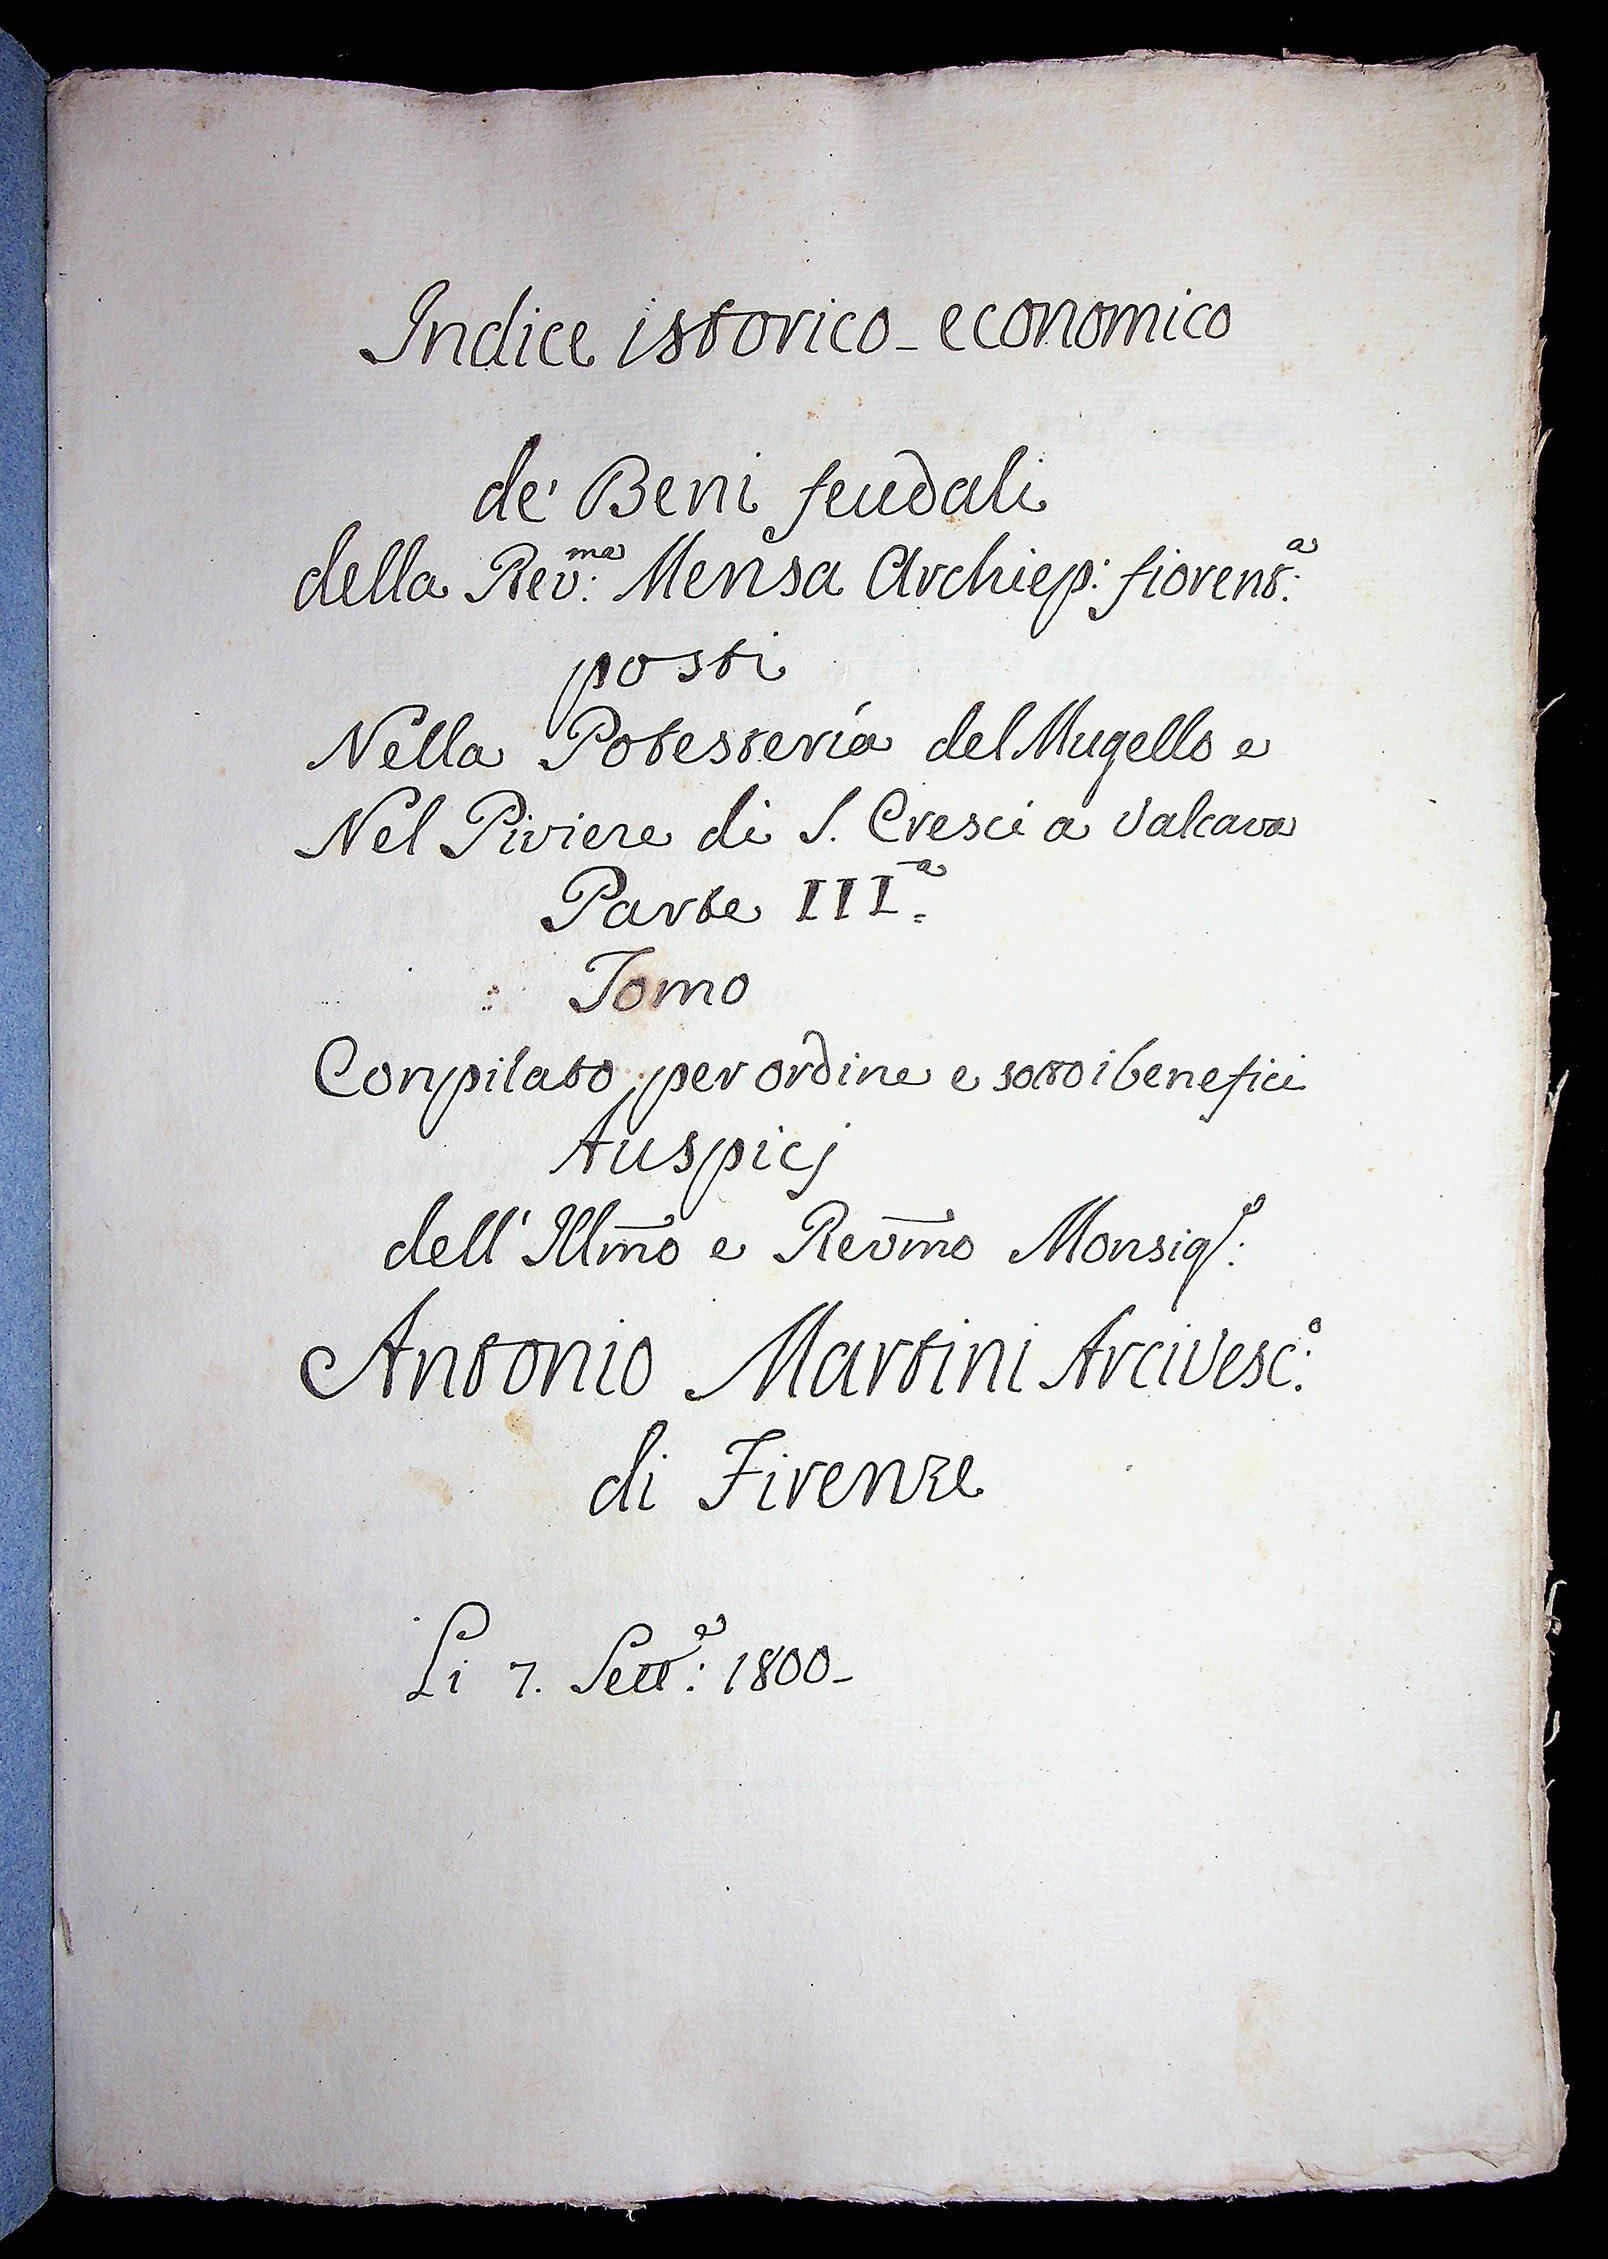 Indice istorico-economico
de' Beni feudali
della Rev:ma Mensa Archiep: fiorent:a
posti
Nella Potesteria del Mugello e
Nel Piviere di S. Cresci a Valcava
Parte III.a
Tomo
Conpilato per ordine e sotto i benefici
Auspicj
dell' Illmo e Revmo Monsigr:
Antonio Martini Arcivesc:o
di Firenze
Li 7. Sett:e 1800-